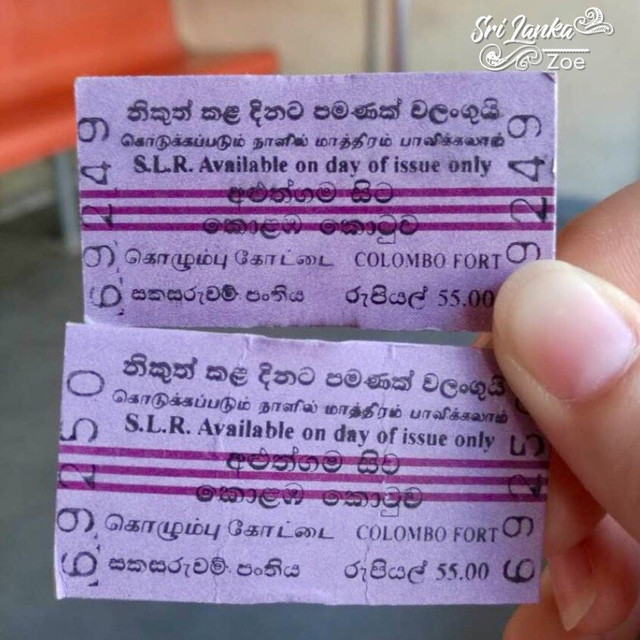 Sri Lanka
Zoe
නිකුත් කළ දිනට පමණක් වලංගුයි
கொடுக்கப்படும் நாளில் மாத்திரம் பாவிக்கலாம்
S.L.R. Available on day of issue only
අළුත්ගම සිට
කොළඹ කොටුව
கொழும்பு கோட்டை COLOMBO FORT
සකසරුවම් පංතිය රුපියල් 55.00
69249
69249
නිකුත් කළ දිනට පමණක් වලංගුයි
கொடுக்கப்படும் நாளில் மாத்திரம் பாவிக்கலாம்
S.L.R. Available on day of issue only
අළුත්ගම සිට
කොළඹ කොටුව
கொழும்பு கோட்டை COLOMBO FORT
සකසරුවම් පංතිය රුපියල් 55.00
69250